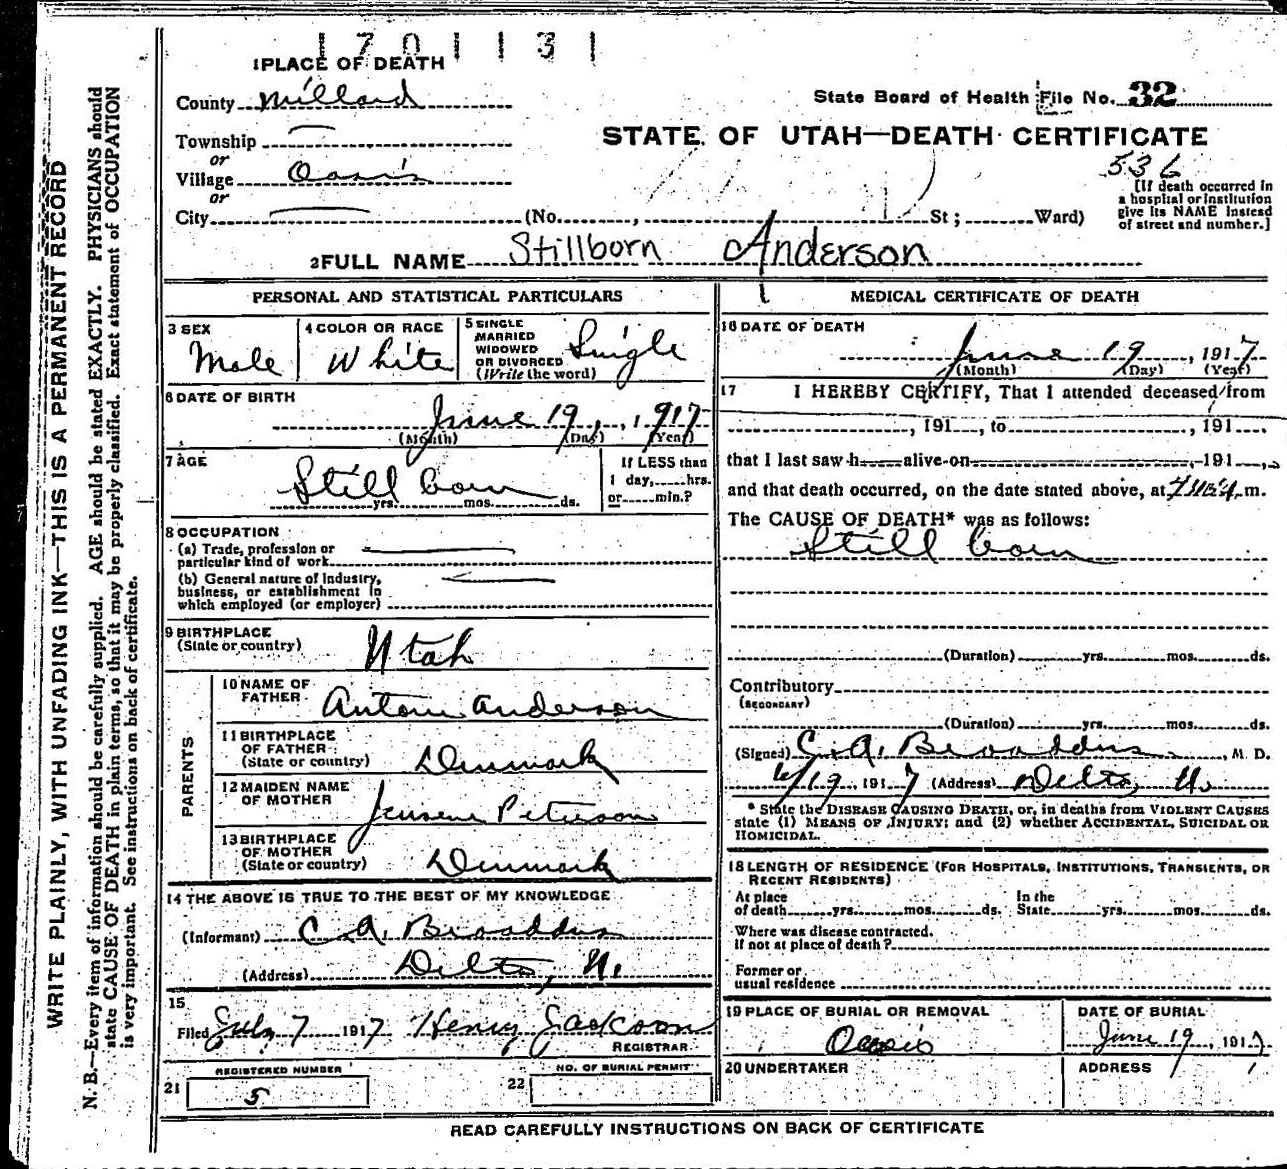 1701131
1 PLACE OF DEATH
County Millard
State Board of Health File No. 32
Township
STATE OF UTAH—DEATH CERTIFICATE
or
Village Oasis
536
or
[If death occurred in
a hospital or institution
give its NAME instead
of street and number.]
City (No. , St; Ward)
2 FULL NAME Stillborn Anderson
PERSONAL AND STATISTICAL PARTICULARS
3 SEX
Male
4 COLOR OR RACE
White
5 SINGLE
MARRIED
WIDOWED
OR DIVORCED
(Write the word)
Single
6 DATE OF BIRTH
June 19, 1917
(Month) (Day) (Year)
7 AGE
Still born
yrs. mos. ds.
If LESS than
1 day, hrs.
or min.?
8 OCCUPATION
(a) Trade, profession or
particular kind of work
(b) General nature of industry,
business, or establishment in
which employed (or employer)
9 BIRTHPLACE
(State or country)
Utah
PARENTS
10 NAME OF
FATHER
Anton Anderson
11 BIRTHPLACE
OF FATHER
(State or country)
Denmark
12 MAIDEN NAME
OF MOTHER
Peterson
13 BIRTHPLACE
OF MOTHER
(State or country)
Denmark
14 THE ABOVE IS TRUE TO THE BEST OF MY KNOWLEDGE
(Informant) C. A. Broaddus
(Address) Delta, U.
15
Filed July 7 1917 Henry Jackson
REGISTRAR
21 REGISTERED NUMBER
5
22 NO. OF BURIAL PERMIT
MEDICAL CERTIFICATE OF DEATH
16 DATE OF DEATH
June 19, 1917
(Month) (Day) (Year)
17 I HEREBY CERTIFY, That I attended deceased from
, 191 , to , 191 ,
that I last saw h alive on , 191 ,
and that death occurred, on the date stated above, at m.
The CAUSE OF DEATH* was as follows:
Still born
(Duration) yrs. mos. ds.
Contributory
(SECONDARY)
(Duration) yrs. mos. ds.
(Signed) C. A. Broaddus, M. D.
6/19, 1917 (Address) Delta, U.
* State the DISEASE CAUSING DEATH, or, in deaths from VIOLENT CAUSES
state (1) MEANS OF INJURY; and (2) whether ACCIDENTAL, SUICIDAL OR
HOMICIDAL.
18 LENGTH OF RESIDENCE (FOR HOSPITALS, INSTITUTIONS, TRANSIENTS, OR
RECENT RESIDENTS)
At place
of death yrs. mos. ds.
In the
State yrs. mos. ds.
Where was disease contracted.
If not at place of death?
Former or
usual residence
19 PLACE OF BURIAL OR REMOVAL
Oasis
DATE OF BURIAL
June 19, 1917
20 UNDERTAKER
ADDRESS
READ CAREFULLY INSTRUCTIONS ON BACK OF CERTIFICATE
WRITE PLAINLY, WITH UNFADING INK—THIS IS A PERMANENT RECORD
N. B.—Every item of information should be carefully supplied. AGE should be stated EXACTLY. PHYSICIANS should
state CAUSE OF DEATH in plain terms, so that it may be properly classified. Exact statement of OCCUPATION
is very important. See instructions on back of certificate.